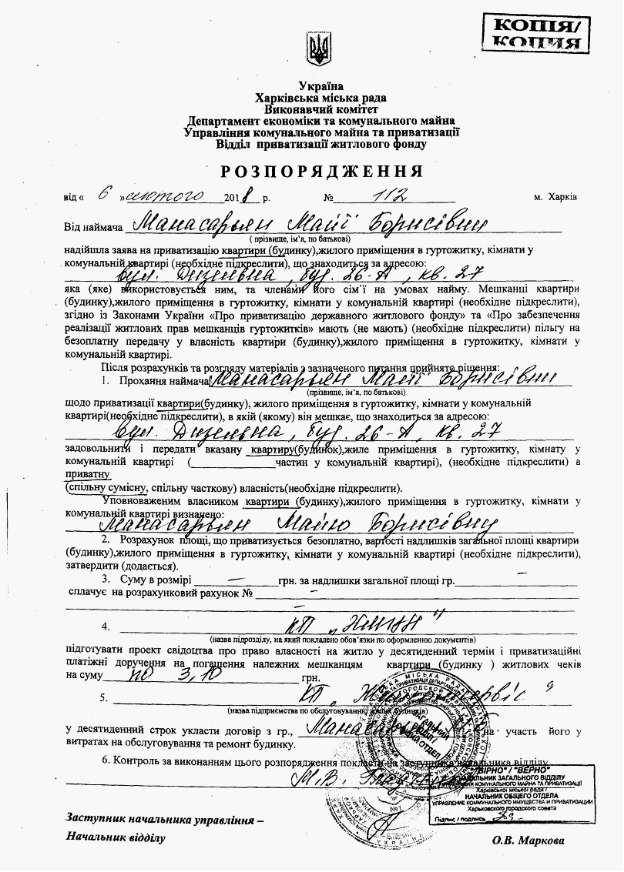 КОПІЯ/
КОПИЯ
Україна
Харківська міська рада
Виконавчий комітет
Департамент економіки та комунального майна
Управління комунального майна та приватизації
Відділ приватизації житлового фонду
РОЗПОРЯДЖЕННЯ
від « 6 » лютого 2018 р. № 112 м. Харків
Від наймача Манасарьян Майї Борисівни
( прізвище, ім'я, по батькові)
надійшла заява на приватизацію квартири (будинку),жилого приміщення в гуртожитку, кімнати у
комунальній квартирі (необхідне підкреслити), що знаходиться за адресою:
вул. Дизельна, буд. 26-А, кв. 27
яка (яке) використовується ним, та членами його сім'ї на умовах найму. Мешканці квартири
(будинку),жилого приміщення в гуртожитку, кімнати у комунальній квартирі (необхідне підкреслити),
згідно із Законами України «Про приватизацію державного житлового фонду» та «Про забезпечення
реалізації житлових прав мешканців гуртожитків» мають (не мають) (необхідне підкреслити) пільгу на
безоплатну передачу у власність квартири (будинку),жилого приміщення в гуртожитку, кімнати у
комунальній квартирі.
Після розрахунків та розгляду матеріалів з зазначеного питання прийняте рішення:
1. Прохання наймача Манасарьян Майї Борисівни
(прізвище, ім'я, по батькові)
щодо приватизації квартири(будинку), жилого приміщення в гуртожитку, кімнати у комунальній
квартирі(необхідне підкреслити), в якій (якому) він мешкає, що знаходиться за адресою:
вул. Дизельна, буд. 26-А, кв. 27
задовольнити і передати вказану квартиру(будинок),жиле приміщення в гуртожитку, кімнату у
комунальній квартирі ( частин у комунальній квартирі), (необхідне підкреслити) в
приватну
(спільну сумісну, спільну часткову) власність(необхідне підкреслити).
Уповноваженим власником квартири (будинку),жилого приміщення в гуртожитку, кімнати у
комунальній квартирі визначено:
Манасарьян Майю Борисівну
2. Розрахунок площі, що приватизується безоплатно, вартості надлишків загальної площі квартири
(будинку),жилого приміщення в гуртожитку, кімнати у комунальній квартирі (необхідне підкреслити),
затвердити (додається).
3. Суму в розмірі — грн. за надлишки загальної площі гр. —
сплачує на розрахунковий рахунок № —
4. КП
(назва підрозділу, на який покладено обов'язки по оформленню документів)
підготувати проект свідоцтва про право власності на житло у десятиденний термін і приватизаційні
платіжні доручення на погашення належних мешканцям квартири (будинку ) житлових чеків
на суму по 3,10 грн.
5. КП
(назва підприємства по обслуговуванню жилих будинків)
у десятиденний строк укласти договір з гр., на участь його у
витратах на обслуговування та ремонт будинку.
6. Контроль за виконанням цього розпорядження покласти на заступника начальника відділу
М.В.
"ВІРНО" / "ВЕРНО"
НАЧАЛЬНИК ЗАГАЛЬНОГО ВІДДІЛУ
УПРАВЛІННЯ КОМУНАЛЬНОГО МАЙНА ТА ПРИВАТИЗАЦІЇ
Харківської міської ради /
НАЧАЛЬНИК ОБЩЕГО ОТДЕЛА
УПРАВЛЕНИЕ КОММУНАЛЬНОГО ИМУЩЕСТВА И ПРИВАТИЗАЦИИ
Харьковского городского совета
Підпис / подпись
Заступник начальника управління –
Начальник відділу О.В. Маркова